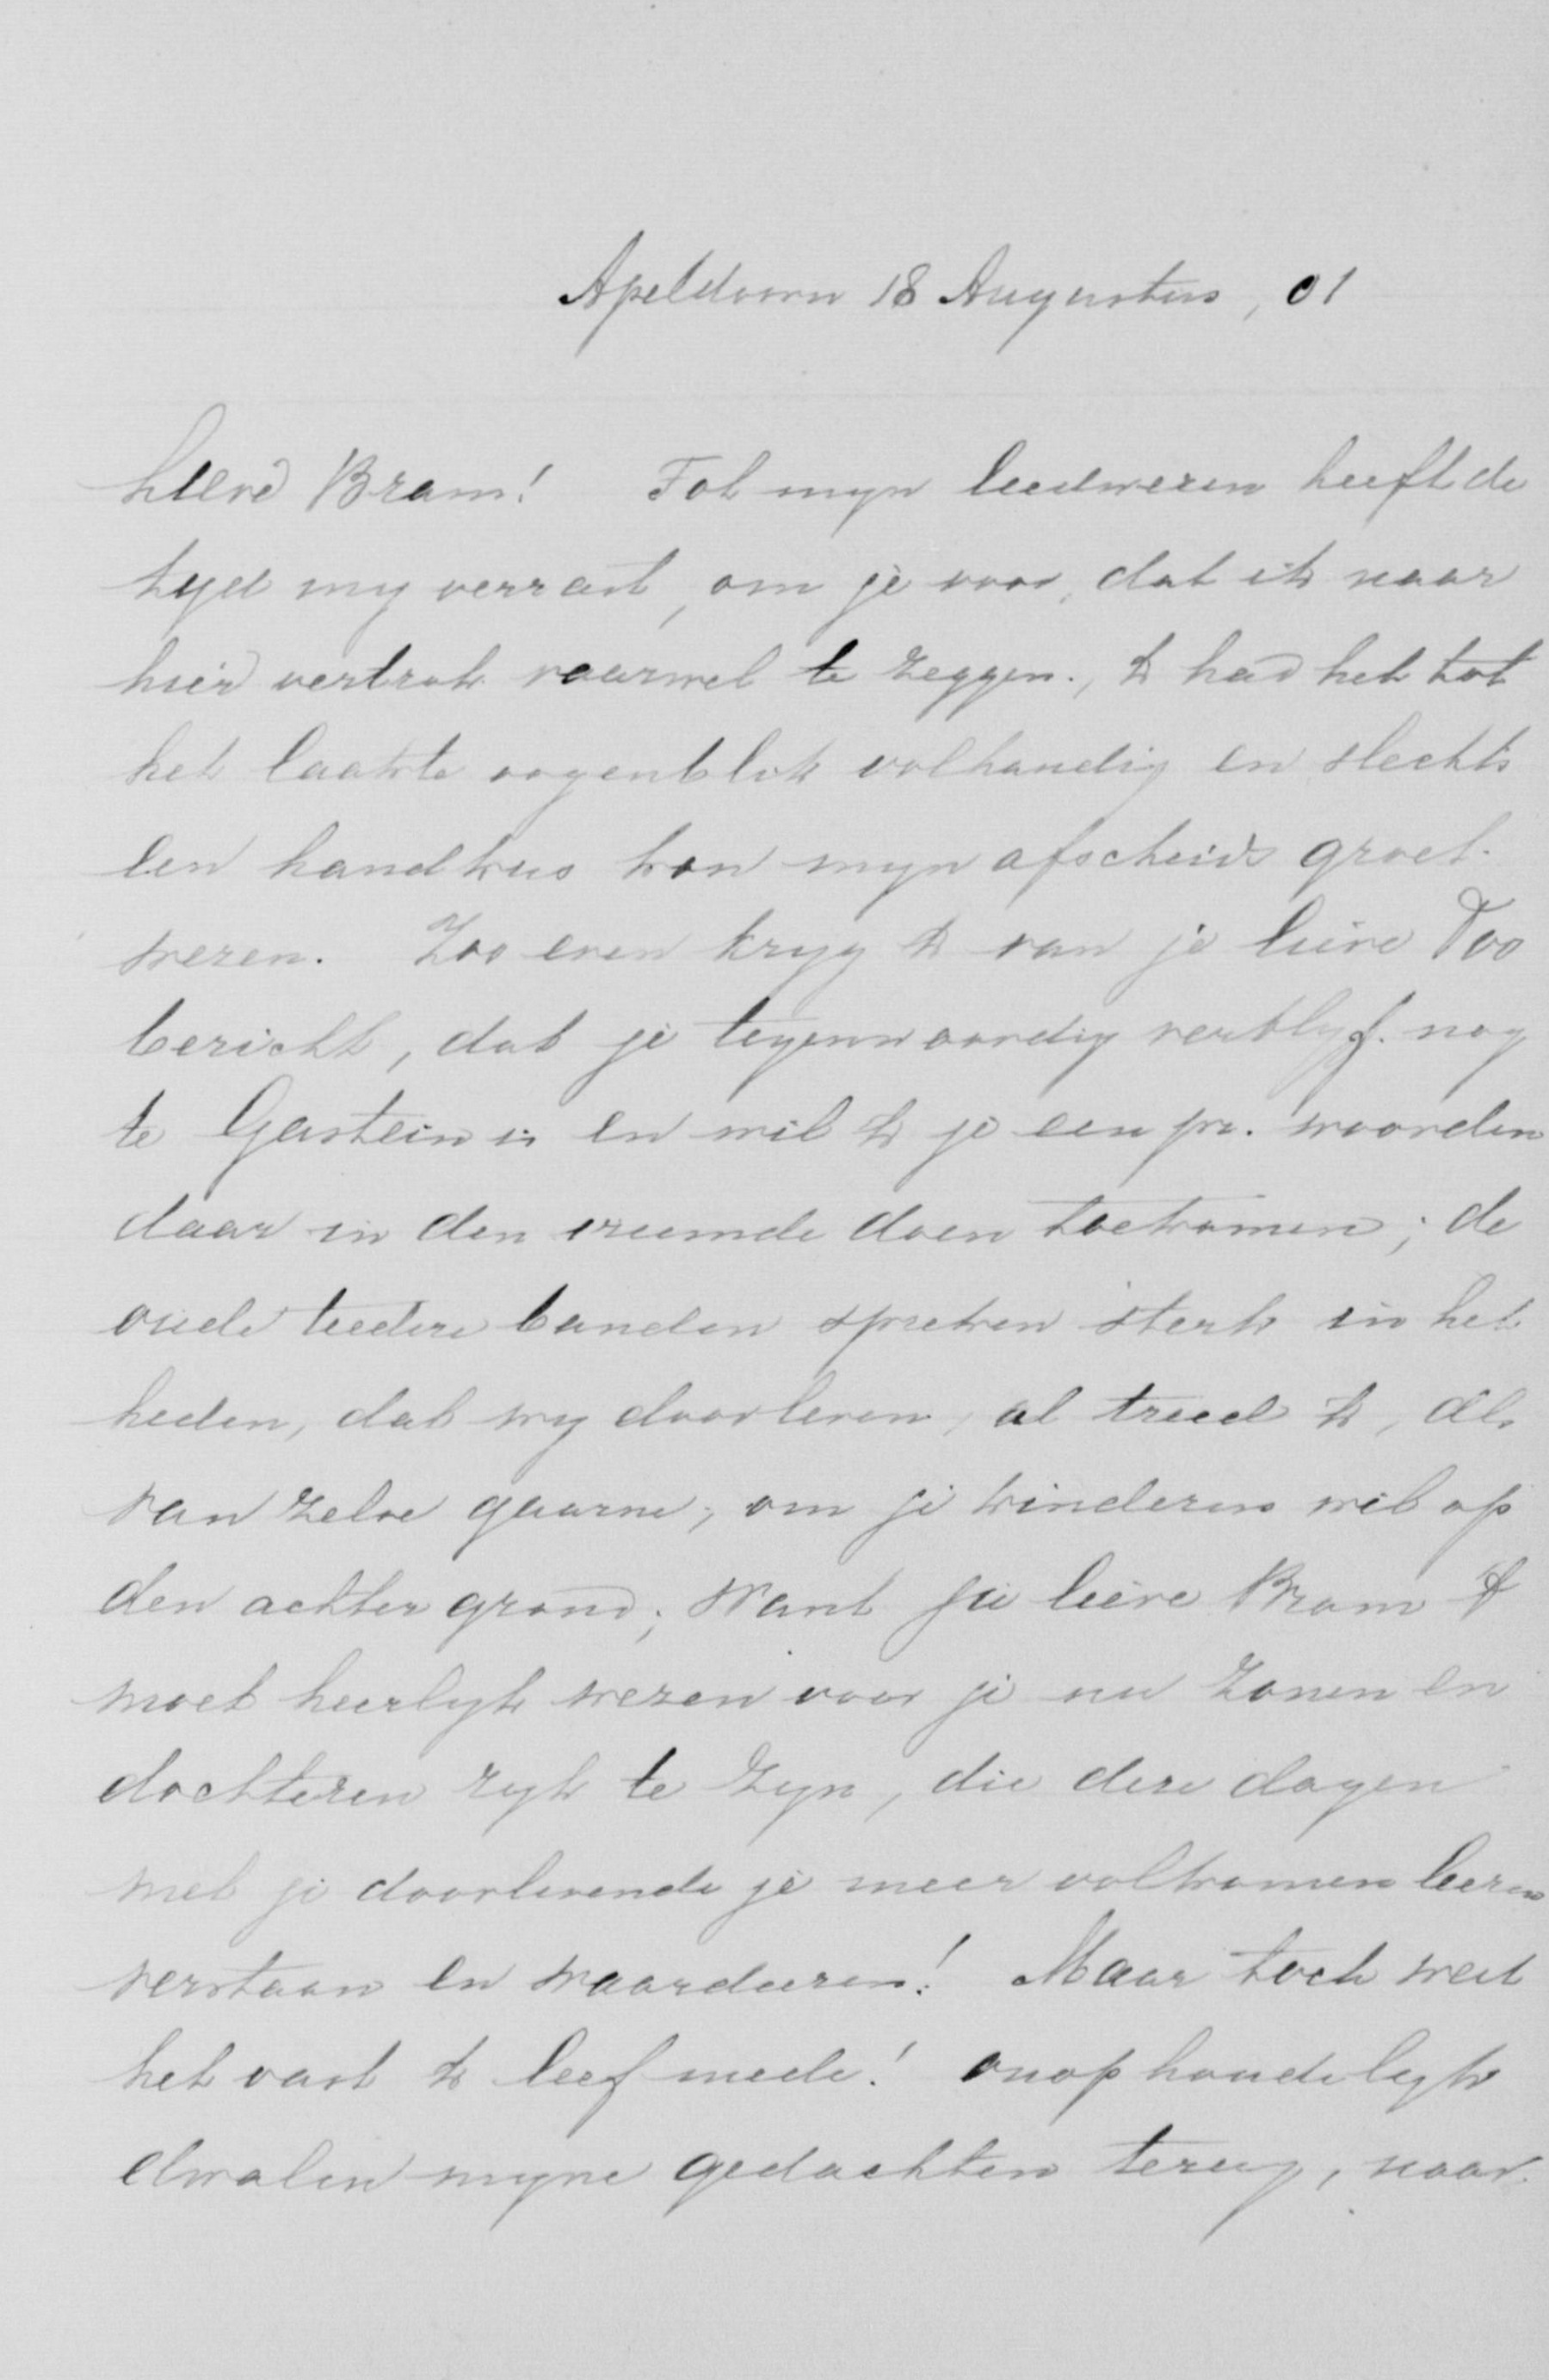 Apeldoorn 18 Augustus, 01
Lieve Bram! Tot myn leedwezen heeft de
tyd my verrast, om je voor, dat ik naar
hier vertrok vaarwel te zeggen., Ik had het tot
het laatste oogenblik volhandig en slechts
een handkus kon myn afscheids groet
wezen. Zoo even kryg ik van je lieve Too
bericht, dat je tegenwoordig verblyf. nog
te Gastein is en wil ik je een pr. woorden
daar in den vreemde doen toekomen; de
oude teedere banden spreken sterk in het
heden, dat wy doorleven, al treed ik, als
van zelve gaarne, om je kinderen wil op
den achter grond; want ja lieve Bram 't
moet heerlyk wezen voor je nu zonen en
dochteren ryk te zyn, die deze dagen
met je doorlevende je meer volkomen leeren
verstaan en waardeeren! Maar toch weet
het vast ik leef mede! onophoudelyk
dwalen myne gedachten terug, naar